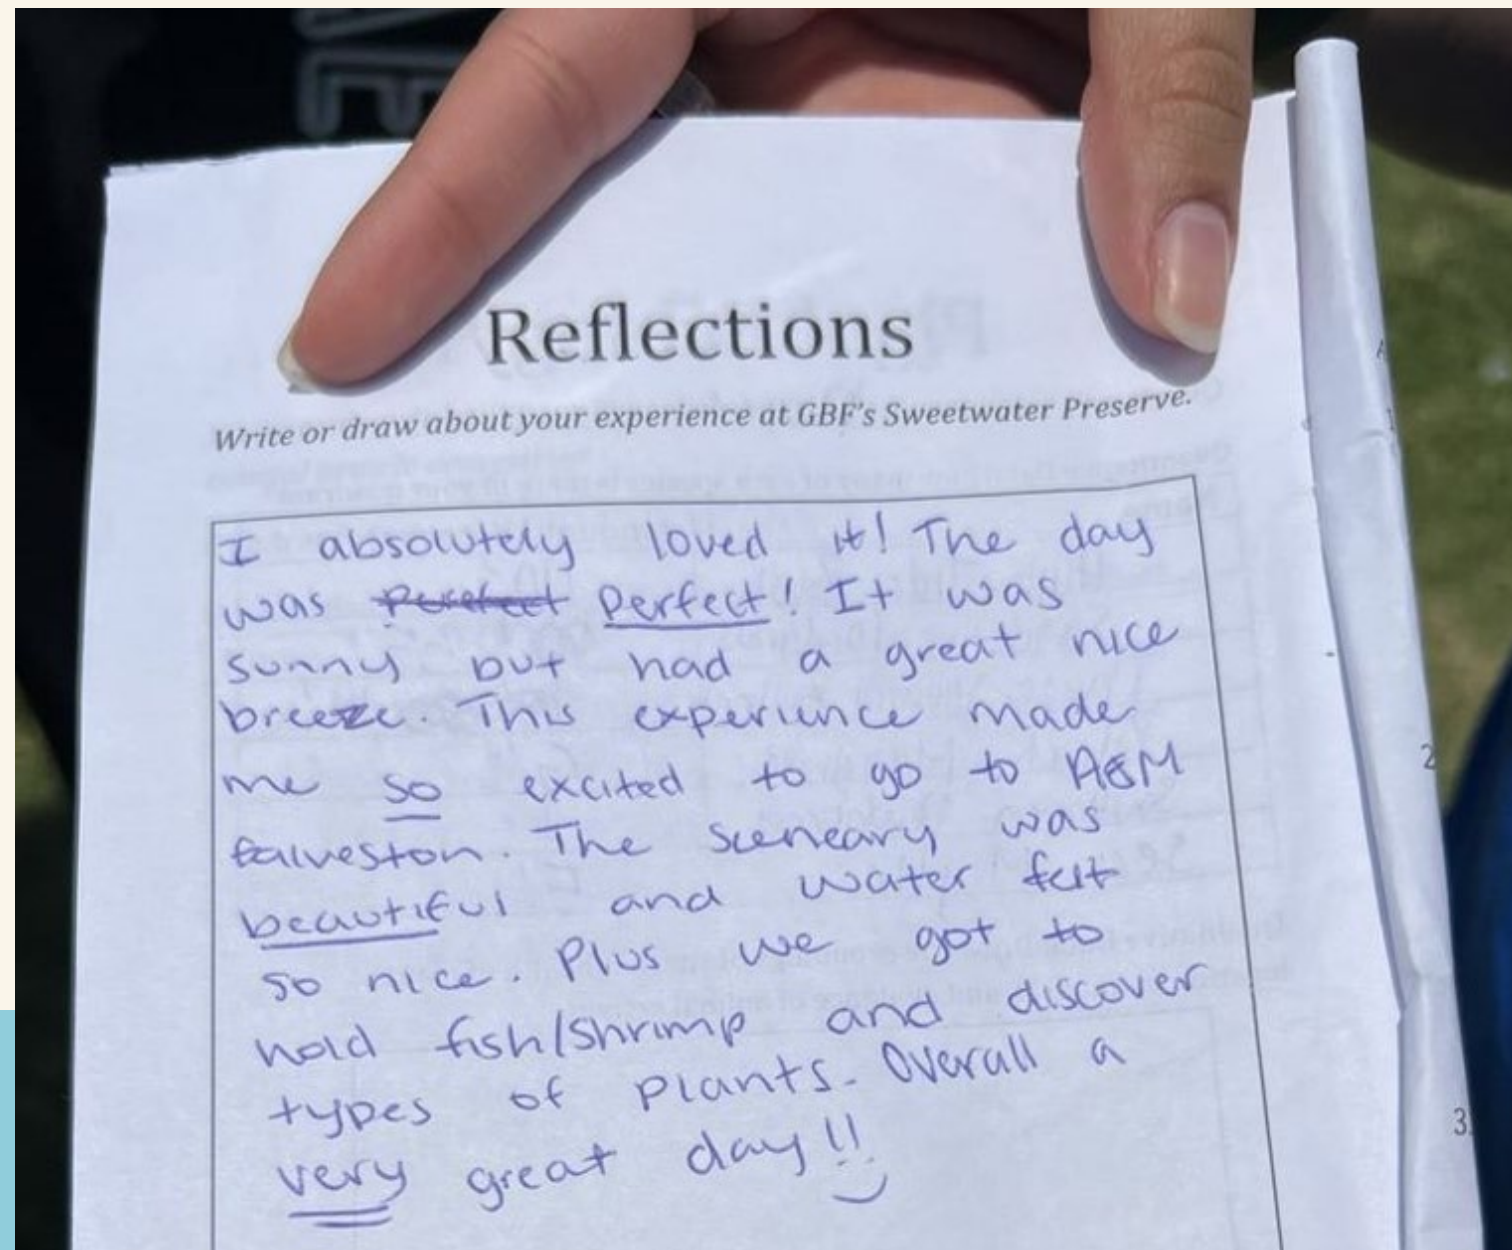 Reflections
Write or draw about your experience at GBF's Sweetwater Preserve.
I absolutely loved it! The day
was perfect! It was
sunny but had a great nice
breeze. This experience made
me so excited to go to A&M
Galveston. The sceneary was
beautiful and water felt
so nice. Plus we got to
hold fish/shrimp and discover
types of plants. Overall a
very great day!!
2
3.